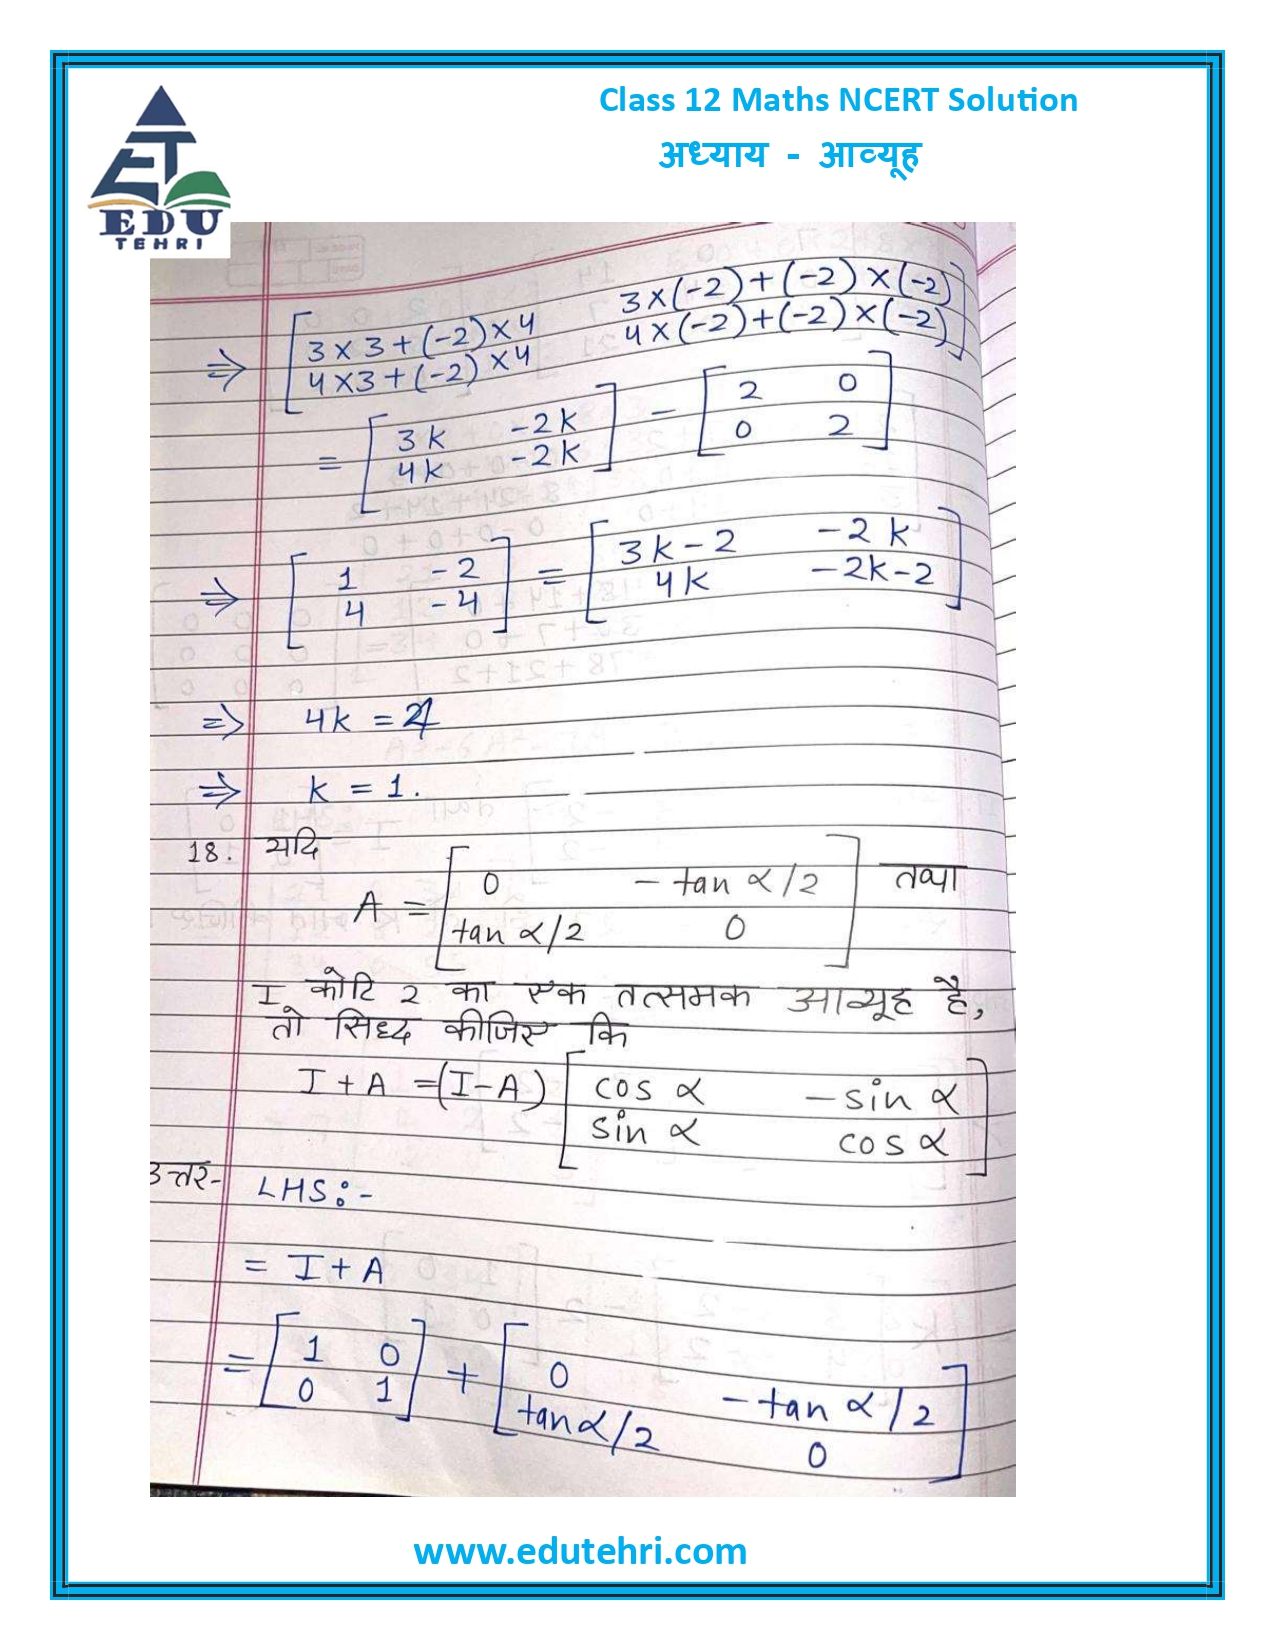 Class 12 Maths NCERT Solution
अध्याय - आव्यूह
EDU
TEHRI
⇒ [ 3×3+(-2)×4   3×(-2)+(-2)×(-2)
4×3+(-2)×4   4×(-2)+(-2)×(-2) ]
= [ 3k   -2k
4k   -2k ] - [ 2   0
0   2 ]
⇒ [ 1   -2
4   -4 ] = [ 3k-2   -2k
4k   -2k-2 ]
⇒ 4k = 4
⇒ k = 1.
18. यदि
A = [ 0   -tan α/2
tan α/2   0 ] तथा
I कोटि 2 का एक तत्समक आव्यूह है,
तो सिध्द कीजिए कि
I + A = (I-A) [ cos α   -sin α
sin α   cos α ]
उत्तर- LHS:-
= I + A
= [ 1   0
0   1 ] + [ 0   -tan α/2
tan α/2   0 ]
www.edutehri.com